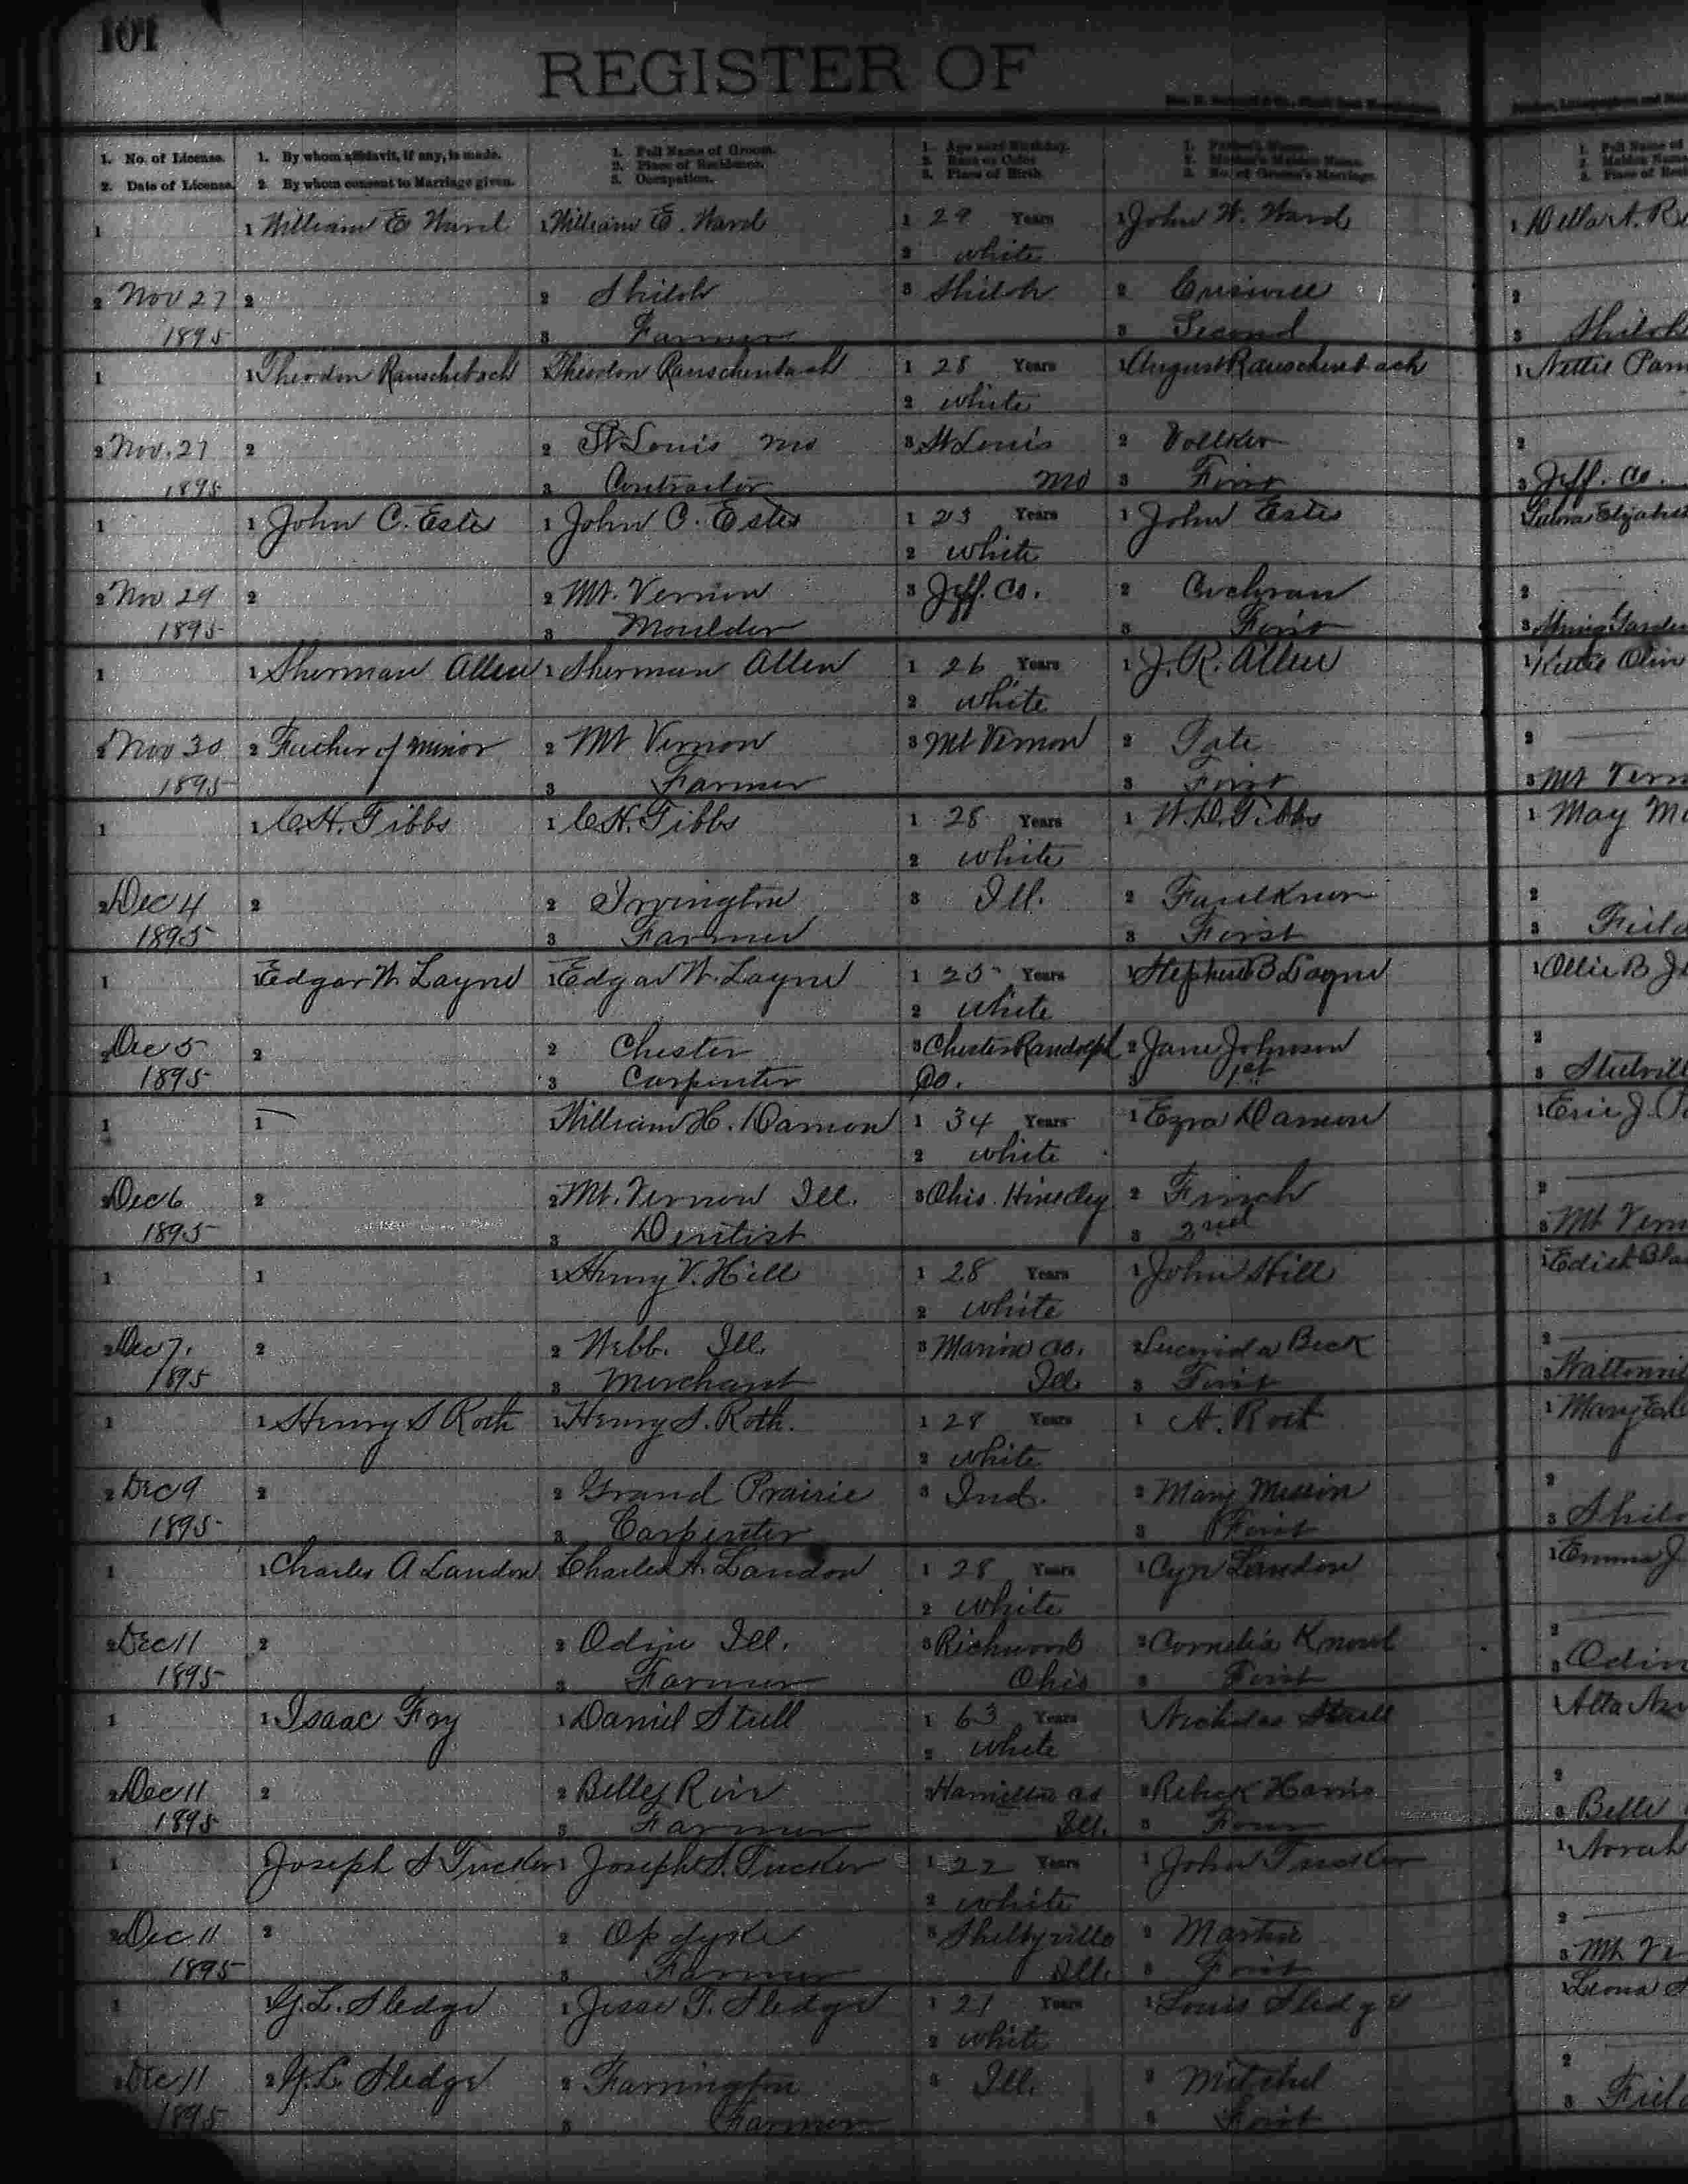 101
REGISTER OF
1. No. of License.
2. Date of License.
1. By whom affidavit, if any, is made.
2. By whom consent to Marriage given.
1. Full Name of Groom.
2. Place of Residence.
3. Occupation.
1. Age next Birthday.
2. Race or Color
3. Place of Birth.
1. Father's Name.
2. Mother's Maiden Name.
3. No. of Groom's Marriage.
1. Full Name of
2. Maiden Name
3. Place of Resi
1 1 William E Ward 1 William E. Ward 1 29 Years 1 John W. Ward 1 Della A. R
2 white
2 Nov 27 2 2 Shiloh 3 Shiloh 2 Criswell 2
1895 3 Farmer 3 Second 3 Shiloh
1 1 Theodon Rauschebach Theodon Rauschenbach 1 28 Years 1 August Rauschenbach 1 Nettie Pam
2 white
2 Nov. 27 2 2 St Louis Mo 3 St Louis 2 Voelker 2
1895 3 Contractor Mo 3 First 3 Jeff. Co.
1 1 John C. Estes 1 John C. Estes 1 23 Years 1 John Estes Elizabet
2 white
2 Nov. 29 2 2 Mt. Vernon 3 Jeff. Co. 2 Cochran 2
1895 3 Moulder 3 First 3 Spring Garden
1 1 Sherman Allen 1 Sherman Allen 1 26 Years 1 J. R. Allen 1 Katie Olin
2 white
2 Nov 30 2 Father of minor 2 Mt Vernon 3 Mt Vernon 2 Tate 2
1895 3 Farmer 3 First 3 Mt Vern
1 1 C. H. Gibbs 1 C. H. Gibbs 1 28 Years 1 W. D. Gibbs 1 May Mc
2 white
2 Dec 4 2 2 Irvington 3 Ill. 2 Faulkner 2
1895 3 Farmer 3 First 3 Field
1 1 Edgar W. Layne 1 Edgar W. Layne 1 25 Years 1 Stephen B Layne 1 Ollie B J
2 white
2 Dec 5 2 2 Chester 3 Chester Randolph 2 Jane Johnson 2
1895 3 Carpenter Co. 3 1st 3
1 1 William H. Damon 1 34 Years 1 Ezra Damon 1 J.
2 white
2 Dec 6 2 2 Mt. Vernon Ill. 3 Ohio. Hinckley 2 Finch 2
1895 3 Dentist 3 2nd 3 Mt Vern
1 1 1 Henry V. Hill 1 28 Years 1 John Hill 1 Edith Bla
2 white
2 Dec 7. 2 2 Webb. Ill. 3 Marion Co. 2 Lucinda Beck 2
1895 3 Merchant Ill. 3 First 3
1 1 Henry S Roth 1 Henry S. Roth. 1 28 Years 1 A. Roth 1 Mary
2 white
2 Dec 9 2 2 Grand Prairie 3 Ind. 2 Mary 2
1895 3 Carpenter 3 First 3 Shilo
1 1 Charles A Landon Charles A. Landon 1 28 Years 1 Landon 1 Emma J
2 white
2 Dec 11 2 2 Odin Ill. 3 Richwood 2 Cornelia 2
1895 3 Farmer Ohio 3 First 3 Odin
1 1 Isaac Foy 1 Daniel Stull 1 63 Years 1 Nicholas Stull 1 Alta
2 white
2 Dec 11 2 2 Belles Rive Hamilton Co 2 Harris 2
1895 3 Farmer Ill. 3 Four 3 Belle
1 Joseph S Tucker 1 Joseph S. Tucker 1 22 Years 1 John Tucker 1 Norah
2 white
2 Dec. 11 2 2 Opdyke 3 Shelbyville 2 Martin 2
1895 3 Farmer Ill. 3 First 3 Mt Ve
1 1 G. L. Sledge 1 Jesse T. Sledge 1 21 Years 1 Louis Sledge Leona
2 white
2 Dec 11 2 G. L. Sledge 2 Farrington 3 Ill. 2 Mitchel 2
1895 3 Farmer 3 First 3 Field